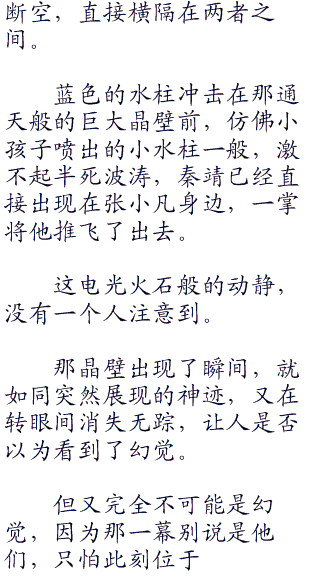 断空，直接横隔在两者之
间。
蓝色的水柱冲击在那通
天般的巨大晶壁前，仿佛小
孩子喷出的小水柱一般，激
不起半死波涛，秦靖已经直
接出现在张小凡身边，一掌
将他推飞了出去。
这电光火石般的动静，
没有一个人注意到。
那晶壁出现了瞬间，就
如同突然展现的神迹，又在
转眼间消失无踪，让人是否
以为看到了幻觉。
但又完全不可能是幻
觉，因为那一幕别说是他
们，只怕此刻位于